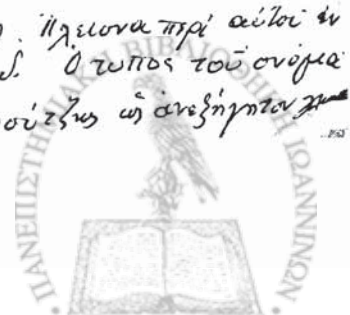 Πλείονα περὶ αὐτοῦ ἐν
Ὁ τύπος τοῦ ὀνόμα
ὡς ἀνεξήγητον
ΠΑΝΕΠΙΣΤΗΜΙΑΚΗ ΒΙΒΛΙΟΘΗΚΗ ΙΩΑΝΝΙΝΩΝ